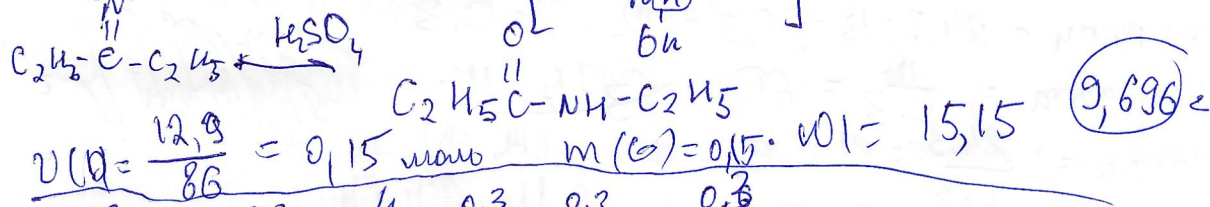 N
||
C₂H₅-C-C₂H₅ H₂SO₄
O
||
C₂H₅C-NH-C₂H₅
6n
ν(1)= 12,9/86 = 0,15 моль m(6)=0,15·101= 15,15 9,696 г
0,3 0,2 0,3